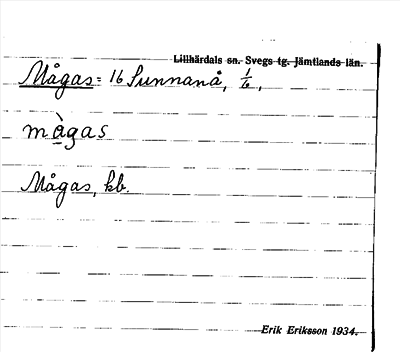 Lillhärdals sn. Svegs tg. Jämtlands län.
Mågas = 16 Sunnanå, 1/6,
mà̱gas
Mågas, kb.
Erik Eriksson 1934.